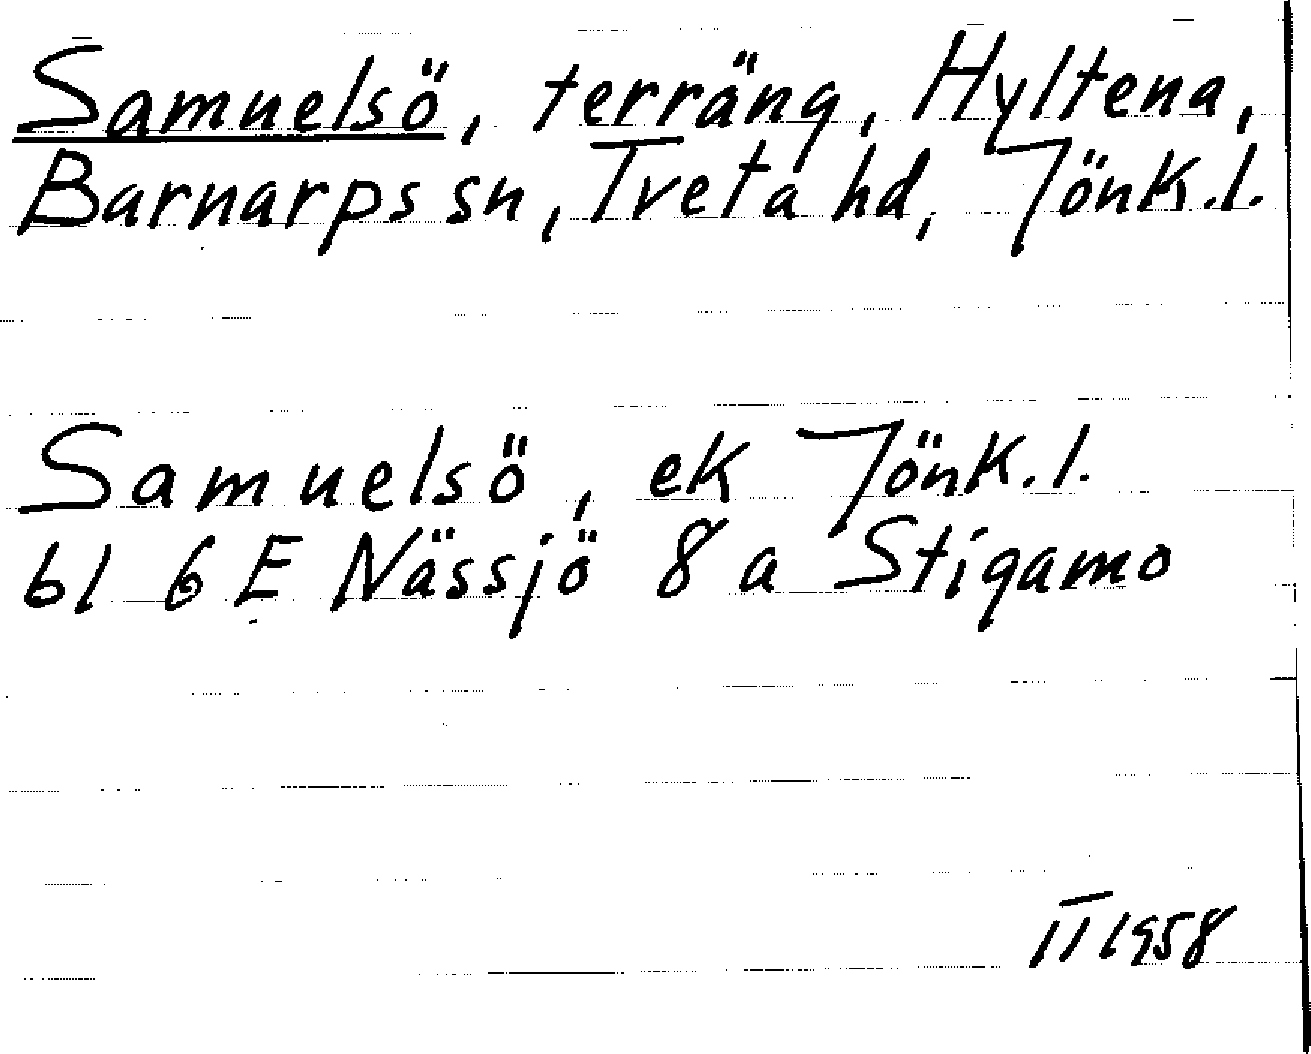 Samuelsö, terräng, Hyltena,
Barnarps sn, Tveta hd, Jönk.l.
Samuelsö, ek Jönk.l.
bl 6 E Nässjö 8 a Stigamo
II 1958